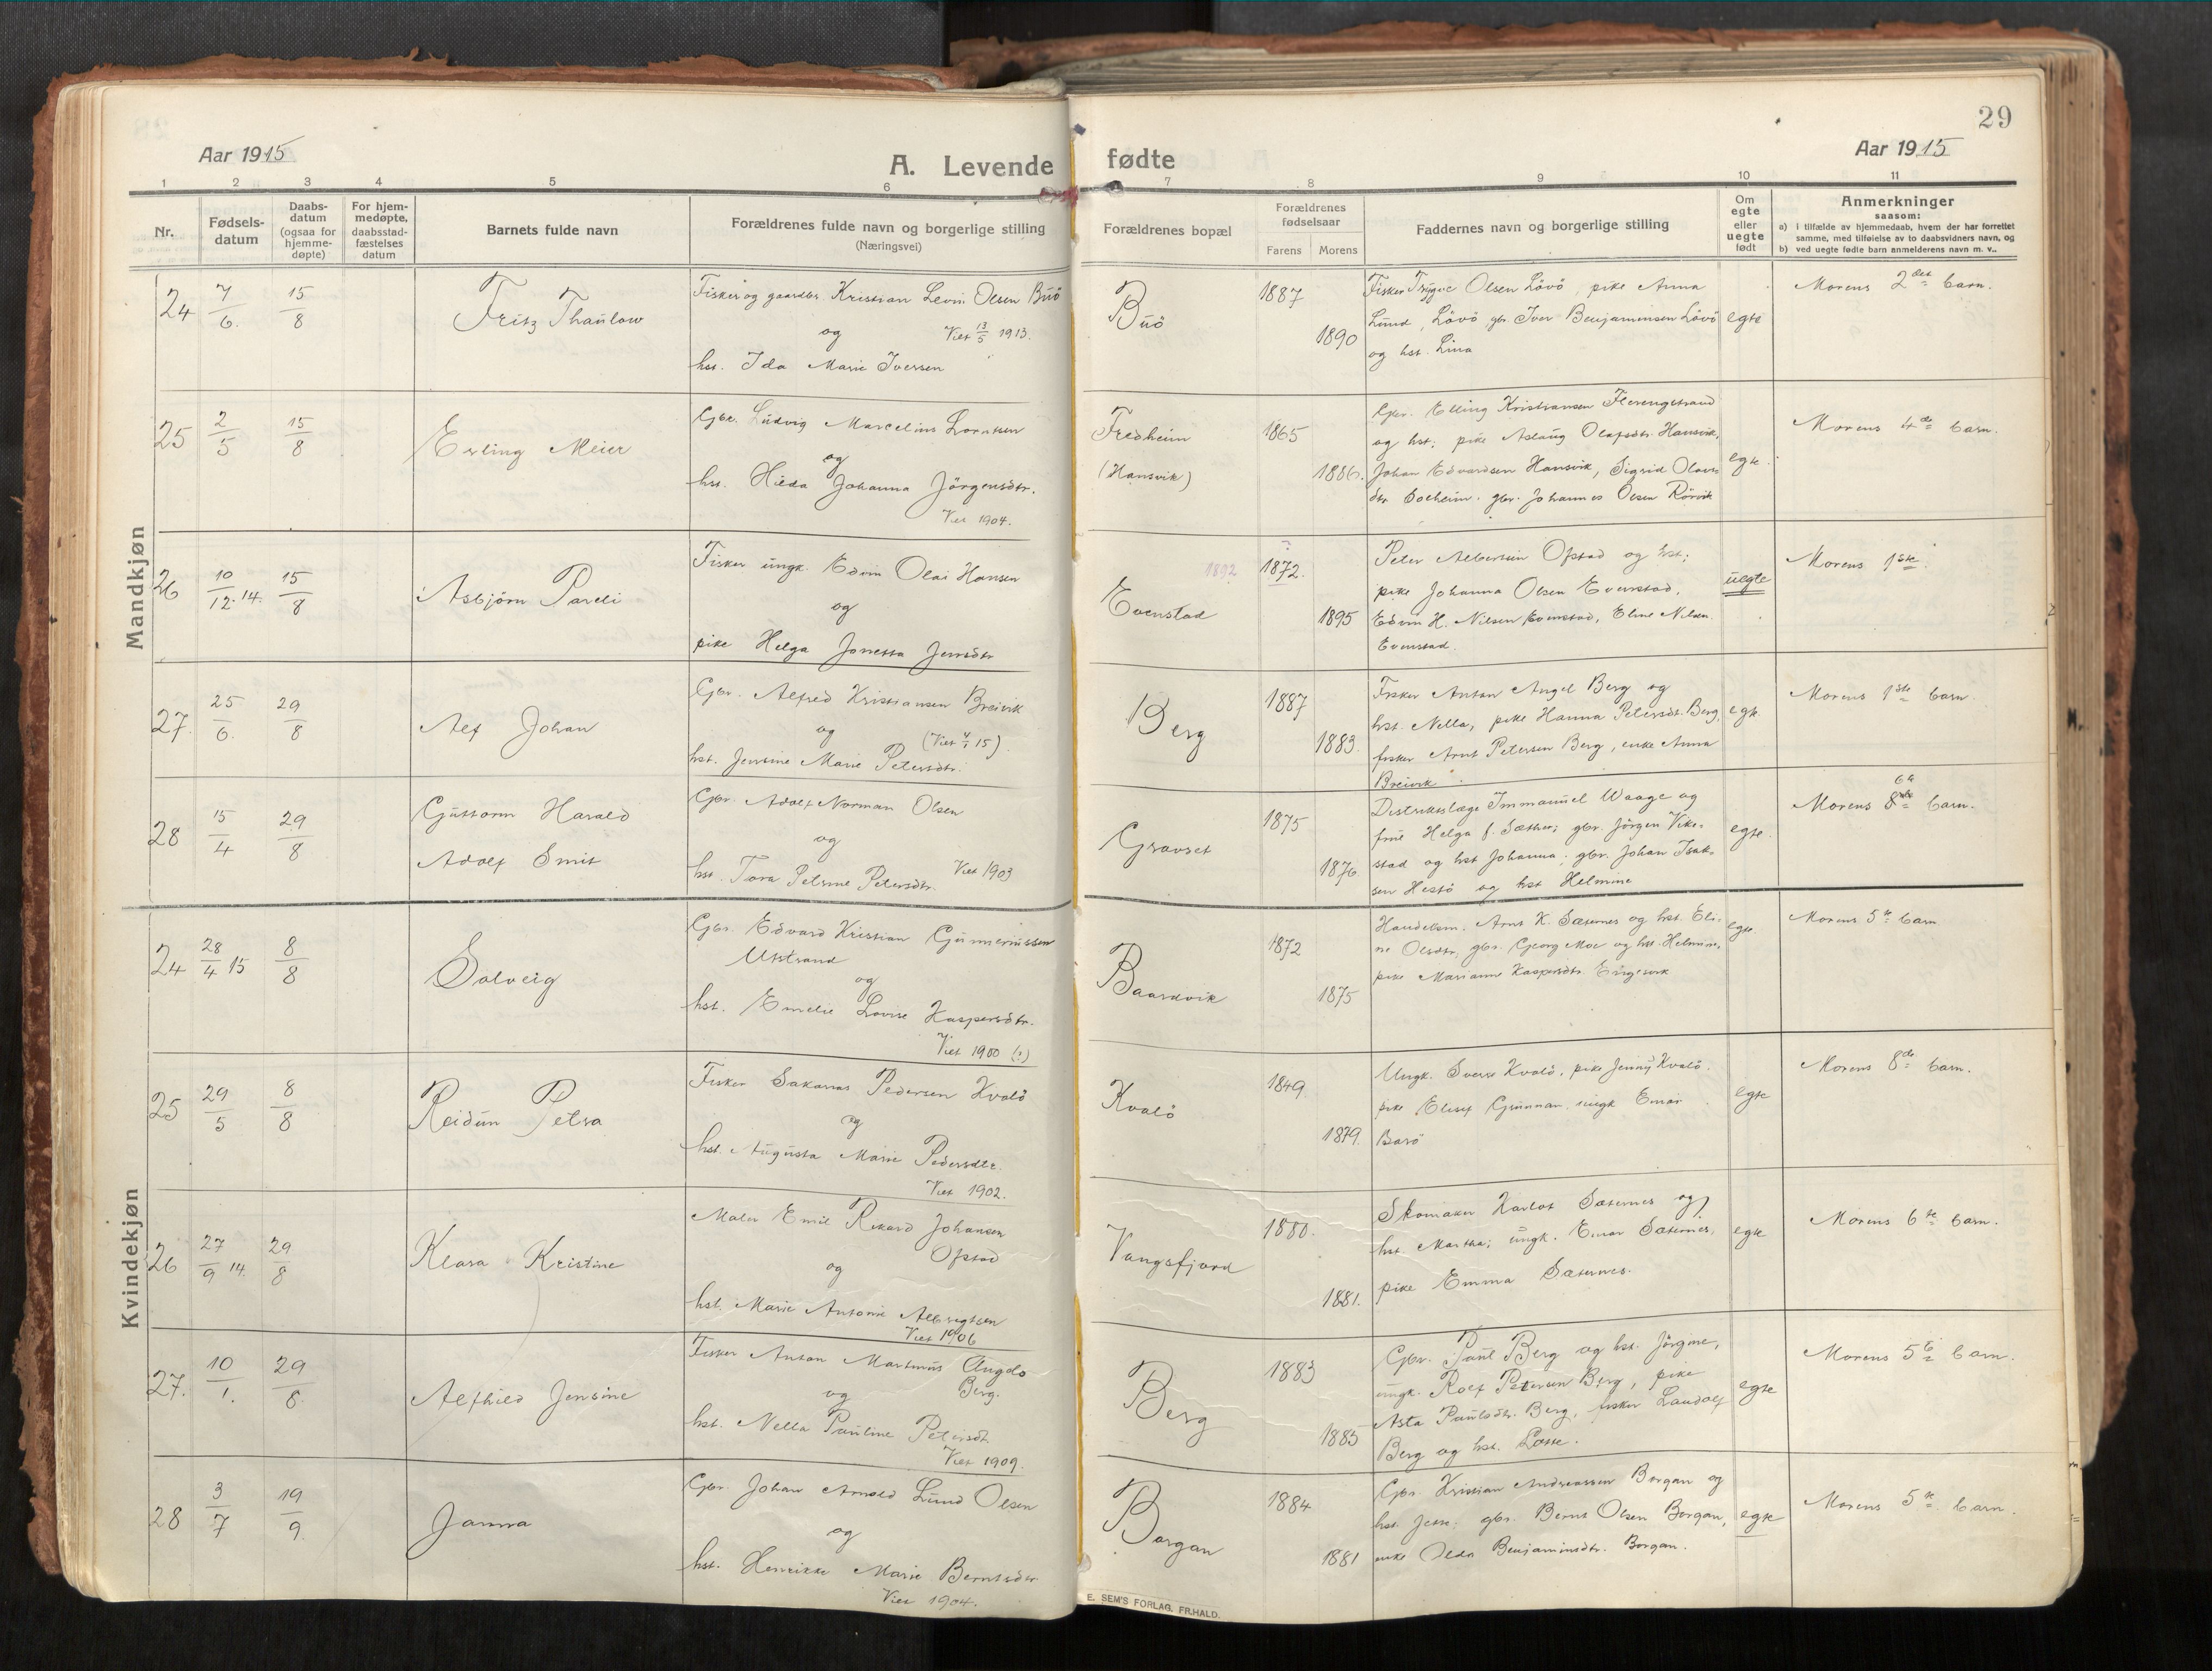 29
Aar 1915
A. Levende fødte
Aar 1915
1 2 3 4 5 6 7 8 9 10 11
Nr.
Fødsels-
datum
Daabs-
datum
(ogsaa for
hjemme-
døpte)
For hjem-
medøpte,
daabsstad-
fæstelses
datum
Barnets fulde navn
Forældrenes fulde navn og borgerlige stilling
(Næringsvei)
Forældrenes bopæl
Forældrenes
fødselsaar
Farens Morens
Faddernes navn og borgerlige stilling
Om
egte
eller
uegte
født
Anmerkninger
saasom:
a) i tilfælde av hjemmedaab, hvem der har forrettet
samme, med tilføielse av to daabsvidners navn, og
b) ved uegte fødte barn anmelderens navn m. v..
Mandkjøn
24 7/6. 15/8 Fritz Thaulow
Fisker og gaardbr. Kristian Levin Olsen Buö
og Viet 13/5 1913.
hst. Ida Marie Iversen
Buö 1887 1890
Fisker Trygve Olsen Lövö, pike Anna
Lund, Lövö, gbr. Iver Benjaminsen Lövö
og hst. Lina
egte
Morens 2det barn.
25 2/5 15/8 Erling Meier
Gbr. Ludvig Marcelius Lorntsen
og
hst. Hilda Johanna Jörgensdtr.
Viet 1904.
Fredheim
(Hansvik)
1865 1886.
Gbr. Elling Kristiansen Flerengstrand
og hst; pike Aslaug Olafsdtr. Hansvik,
Johan Edvardsen Hansvik, Sigrid Olavs
dtr Solheim. gbr. Johannes Olsen Rörvik
egte.
Morens 4de barn.
26 10/12.14. 15/8 Asbjörn Pareli
Fisker ungk. Edvin Olai Hansen
og
pike Helga Jonetta Jensdtr
Evenstad 1892 1872. ? 1895
Peter Albertsen Opstad og hst;
pike Johanna Olsen Evenstad,
Edvin H. Nilsen Evenstad, Eline Nilsen
Evenstad.
uegte
Morens 1ste.
27. 25/6. 29/8 Alf Johan
Gbr. Alfred Kristiansen Breivik
og (Viet 4/1 15).
hst. Jensine Marie Petersdtr.
Berg 1887 1883.
Fisker Anton Angel Berg og
hst. Nella, pike Hanna Petersdt. Berg,
fisker Arnt Petersen Berg, enke Anna
Breivik
egte.
Morens 1ste barn.
28 15/4 29/8 Guttorm Harald
Adolf Smit
Gbr. Adolf Norman Olsen
og
hst. Tora Petrine Petersdtr. Viet 1903
Gravset 1875 1876
Distriktslæge Immanuel Waage og
frue Helga f. Sæther; gbr. Jörgen Vike-
stad og hst Johanna; gbr. Johan Isak-
sen Hestö og hst Helmine
egte.
Morens 8de barn.
Kvindekjøn
24 28/4 15 8/8 Solveig
Gbr. Edvard Kristian Gunneriussen
Utstrand
og
hst. Emelie Lovise Kaspersdtr.
Viet 1900 (?)
Baardvik 1872 1875
Handelsm. Arnt K. Sæternes og hst. Eli-
ne Olsdtr, gbr. Georg Moe og hst. Helmine,
pike Marianne Kaspersdtr. Engesvik
egte
Morens 5te barn
25 29/5 8/8 Reidun Petra
Fisker Sakarias Pedersen Kvalö
og
hst. Augusta Marie Pedersdtr.
Viet 1902.
Kvalö 1849 1879.
Ungk. Sverre Kvalö, pike Jenny Kvalö.
pike Elisef Grunnan, ungk Einar
Barö
egte
Morens 8de barn.
26 27/9 14. 29/8 Klara Kristine
Maler Emil Rikard Johansen
Opstad
og
hst. Marie Antonie Albregtsen
Viet 1906
Vangsfjord 1880. 1881.
Skomaker Karlot Sæternes og
hst. Martha; ungk. Einar Sæternes,
pike Emma Sæternes.
egte
Morens 6te barn.
27. 10/1. 29/8. Alfhild Jensine
Fisker Anton Martinus Angelo
Berg.
og
hst. Nella Pauline Petersdt.
Viet 1909.
Berg 1883 1885
Gbr. Paul Berg og hst. Jörgine,
ungk. Rolf Petersen Berg, pike
Asta Paulsdtr. Berg, fisker Landolf
Berg og hst. Lotte.
egte
Morens 5te barn.
28 3/7 19/9. Janna
Gbr. Johan Arnold Lund Olsen
og
hst. Henrikke Marie Berntsdtr.
Viet 1904.
Borgan 1884 1881
Gbr. Kristian Andreassen Borgan og
hst. Jette; gbr. Bernt Olsen Borgan,
enke Olda Benjaminsdtr. Borgan.
egte
Morens 5te barn.
E. SEM'S FORLAG, FR.HALD.